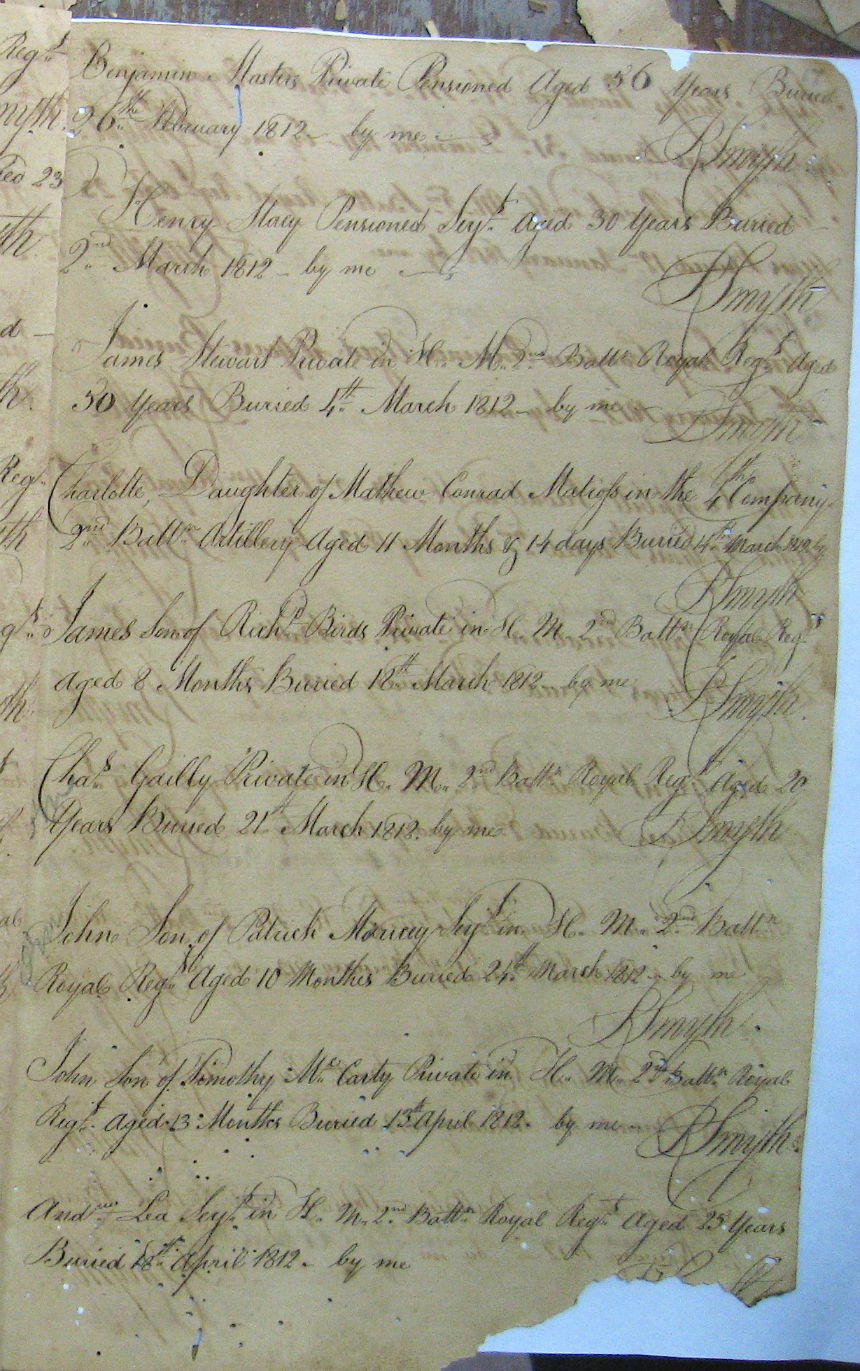 Benjamin Masters Private Pensioned Aged 56 Years Buried
26th February 1812 by me
R Smyth
Henry Stacy Pensioned Serjt Aged 30 Years Buried
2nd March 1812 by me
R Smyth
James Stewart Private in H. M. 2nd Battn Royal Regt Aged
30 Years Buried 4th March 1812 by me
R Smyth
Charlotte, Daughter of Mathew Conrad Matross in the 4th Company
2nd Battn Artillery Aged 11 Months & 14 days Buried 14th March 1812 by
R Smyth
James Son of Richd Birds Private in H. M. 2nd Battn Royal Regt
Aged 8 Months Buried 18th March 1812 by me
R Smyth
Chas Gailly Private in H. M. 2nd Battn Royal Regt Aged 20
Years Buried 21st March 1812. by me
R Smyth
John Son of Patrick Serjt in H. M. 2nd Battn
Royal Regt Aged 10 Months Buried 24th March 1812 by me
R Smyth.
John Son of Timothy Mc Carty Private in H. M. 2nd Battn Royal
Regt Aged 13 Months Buried 13th April 1812. by me
R Smyth
Andrew Lea Serjt in H. M. 2nd Battn Royal Regt Aged 25 Years
Buried 18th April 1812. by me